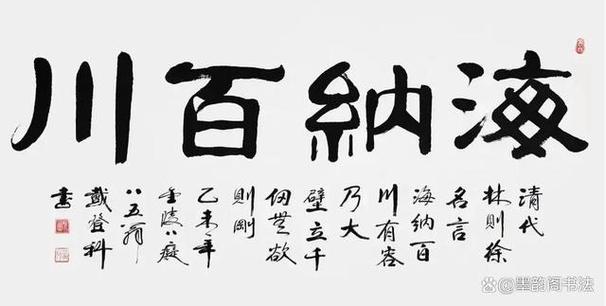 海納百川
清代
林則徐
名言
海納百
川有容
乃大
壁立千
仞無欲
則剛
乙未年
金陵八癡
八五翁
戴登科
書
墨韵阁书法